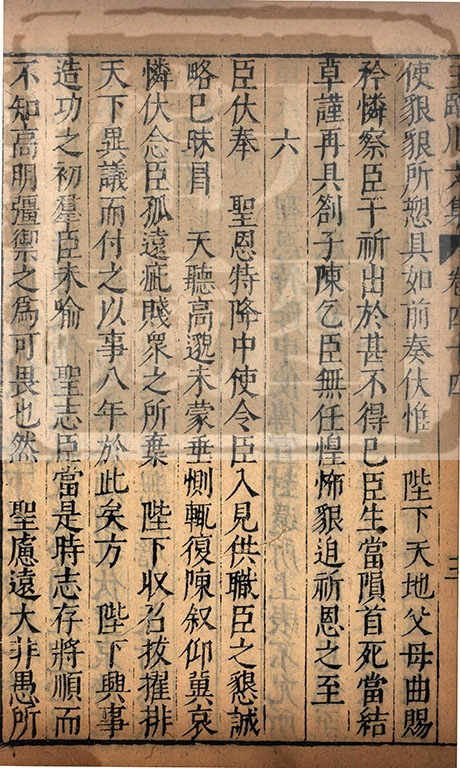 臨川文集 卷四十四 三
使懇懇所愬具如前奏伏惟 陛下天地父母曲賜
矜憐察臣干祈出於甚不得已臣生當隕首死當結
草謹再具劄子陳乞臣無任惶怖懇迫祈恩之至
六
臣伏奉 聖恩特降中使令臣入見供職臣之懇誠
略已昧冒 天聽高邈未蒙垂惻輒復陳叙仰冀哀
憐伏念臣孤遠疵賤衆之所棄 陛下収召拔擢排
天下異議而付之以事八年於此矣方 陛下興事
造功之初羣臣未喻 聖志臣當是時志存將順而
不知高明彊禦之爲可畏也然 聖慮遠大非愚所